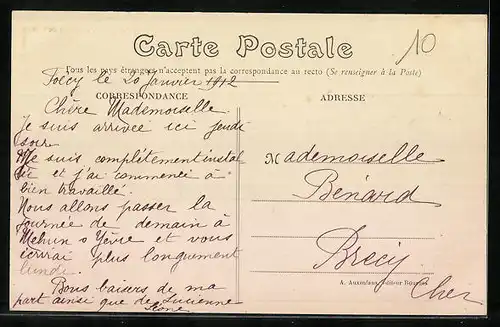 Carte Postale
10
Tous les pays étrangers n'acceptent pas la correspondance au recto (Se renseigner à la Poste)
le 20 Janvier 1912
CORRESPONDANCE
ADRESSE
Chère Mademoiselle
Je suis arrivée ici jeudi
soir
Me suis complétement instal
lée et j'ai commencé à
bien travaillé.
Nous allons passer la
journée de demain à
Mehun s Yèvre et vous
écrirai plus longuement
lundi.
Bons baisers de ma
part ainsi que de Lucienne
Mademoiselle
Bénard
Brécy
Cher
A. Auxenfans, éditeur Bourges